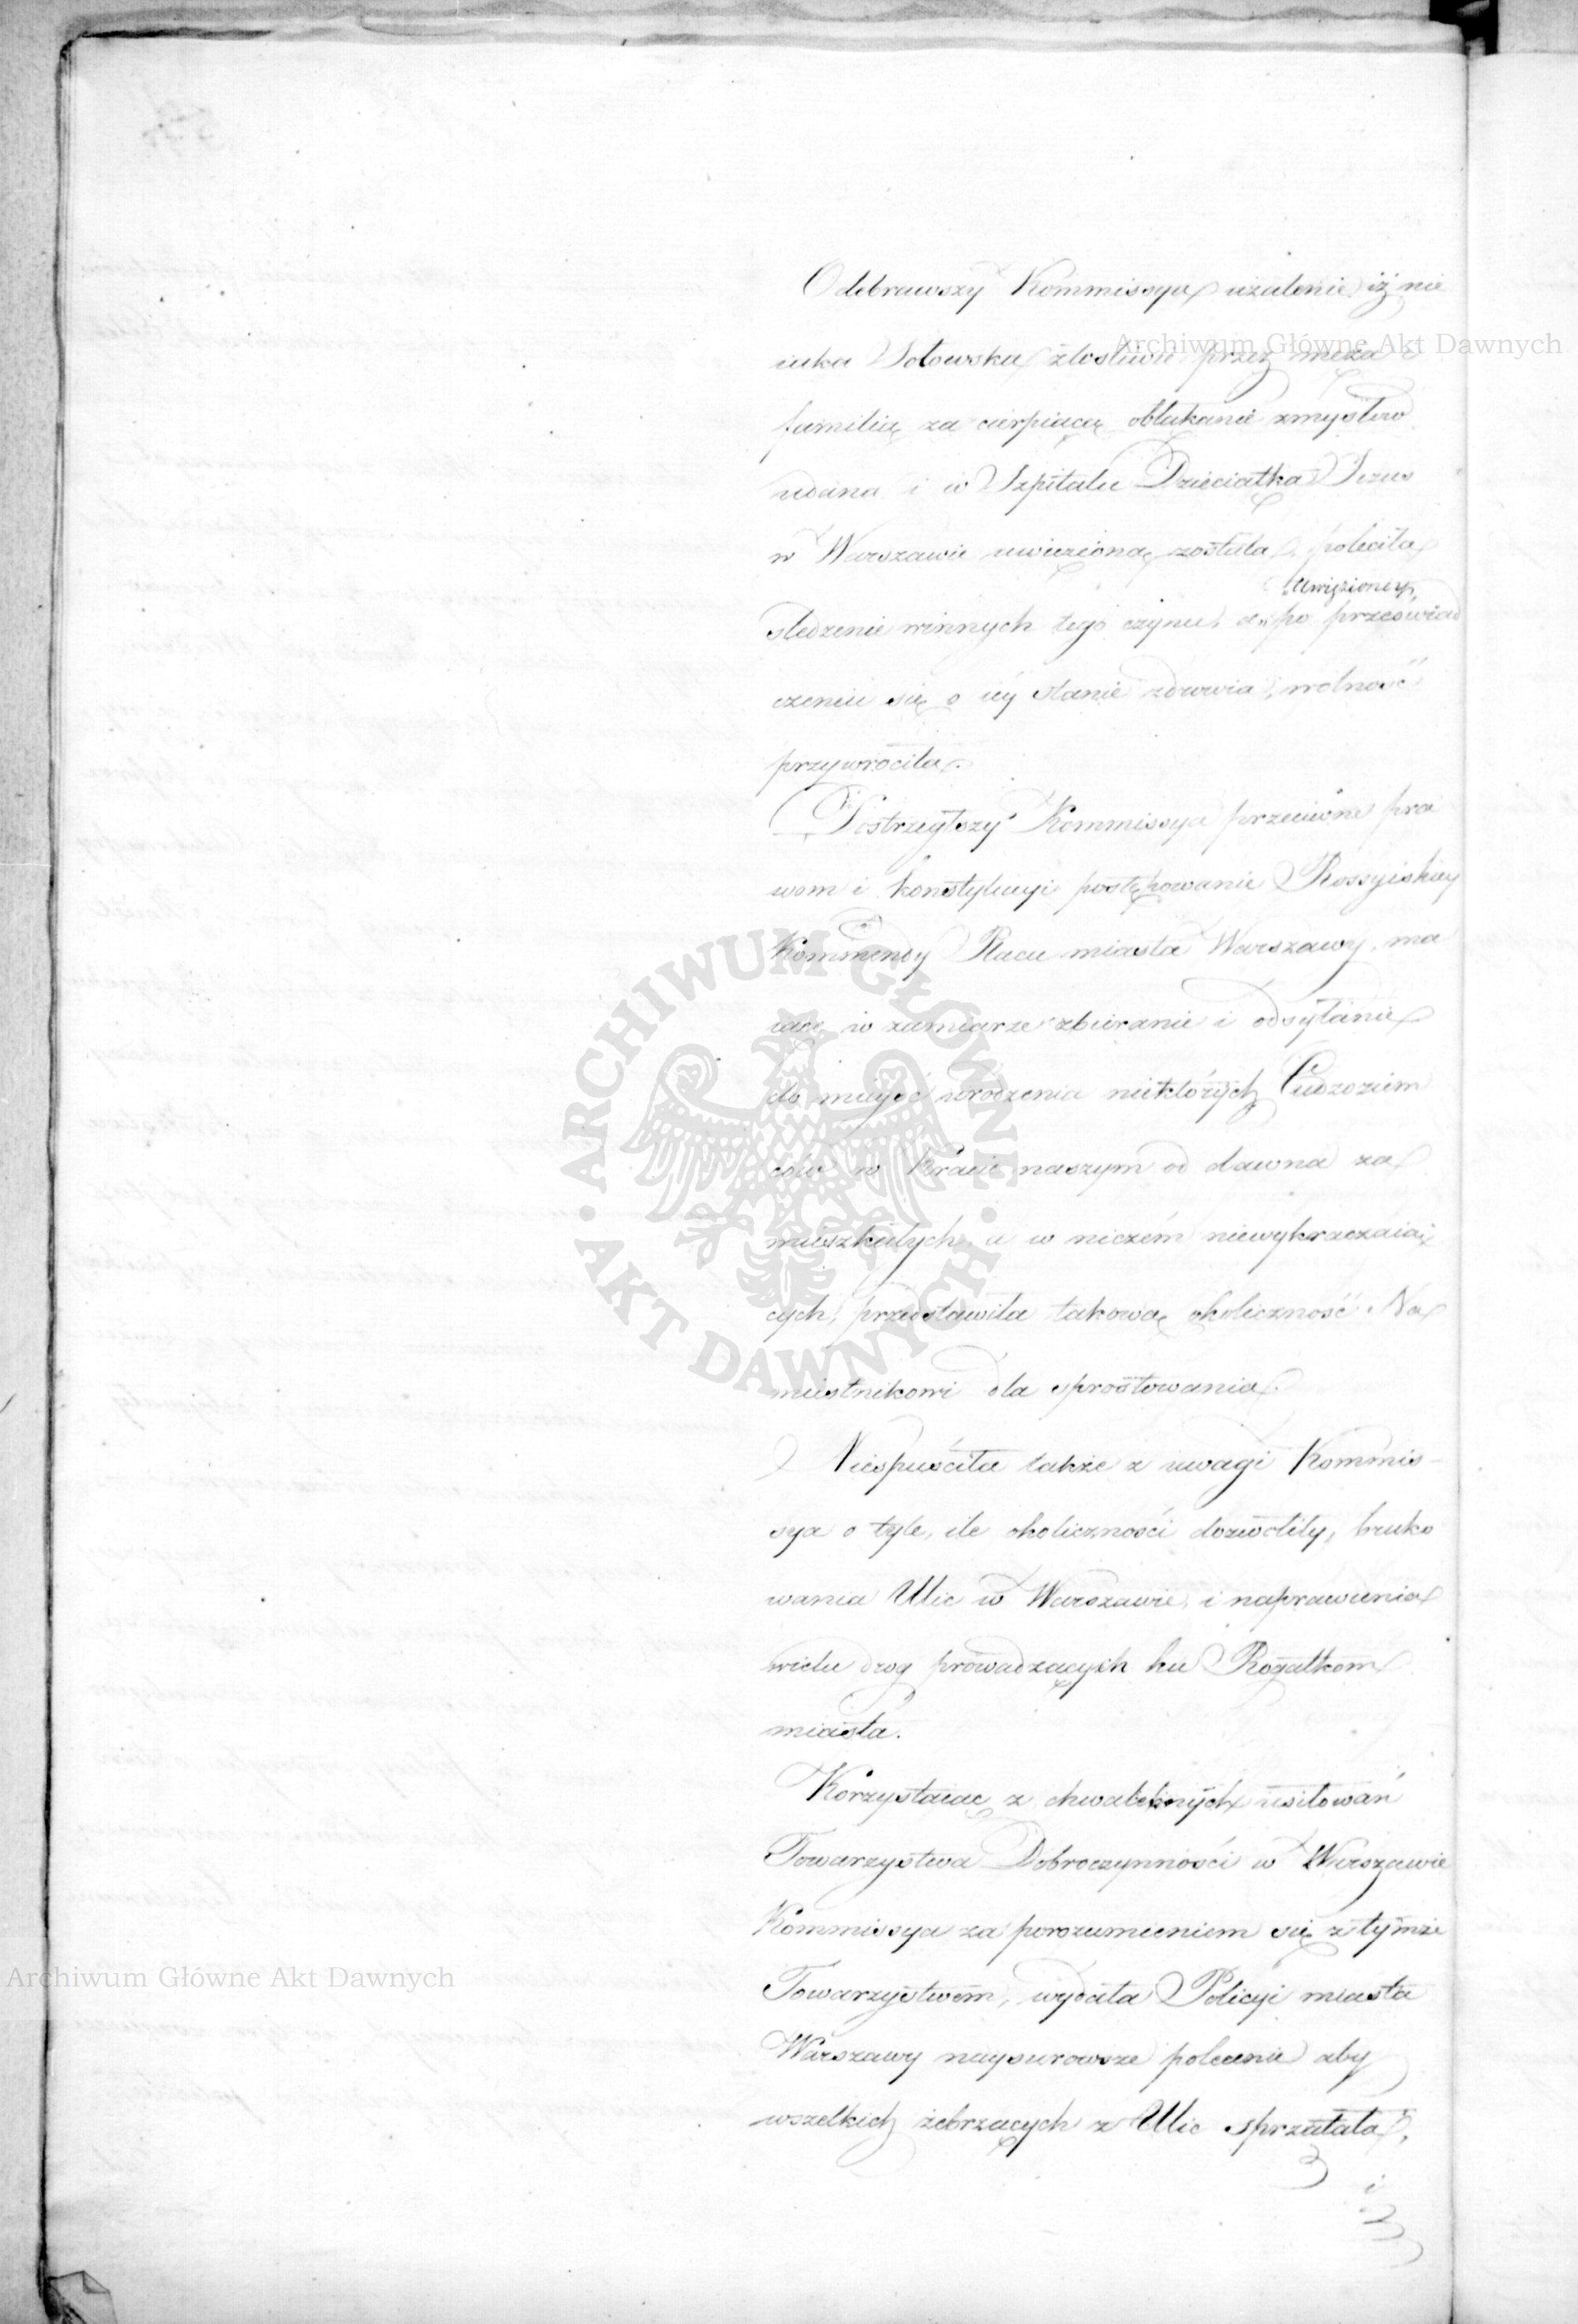 Odebrawszy Kommissya użalenie, iż nie
iaka Sołowska złosliwie przez męża i
familią za cierpiącą obłąkanie zmysłów
udana i w Szpitalu Dzieciątka Jezus
w Warszawie uwięzioną została, poleciła
uwięzioney,
sledzenie winnych tego czynu, a po przeświad
czeniu się o iéy stanie zdrowia, wolność
przywróciła.
Postrzegłszy Kommissya przeciwne pra
wom i konstytucyi postępowanie Rossyiskiey
Kommendy Placu miasta Warszawy, ma
iące w zamiarze zbieranie i odsyłanie
do mieysc urodzenia niektórych Cudzoziem
ców w Kraiu naszym od dawna za
mieszkałych, a w niczém niewykraczaią
cych, przedstawiła takową okoliczność Na
miestnikowi dla sprostowania.
Niespuściła także z uwagi Kommis-
sya o tyle, ile okoliczności dozwoliły, bruko
wania Ulic w Warszawie, i naprawienia
wielu drog prowadzących ku Rogatkom
miasta.
Korzystaiąc z chwalebnych usiłowań
Towarzystwa Dobroczynności w Warszawie
Kommissya za porozumieniem się z tymże
Towarzystwem, wydała Policyi miasta
Warszawy naysurowsze polecenie aby
wszelkich żebrzących z Ulic sprzątała,
i
Archiwum Główne Akt Dawnych
Archiwum Główne Akt Dawnych
• ARCHIWUM GŁÓWNE •
AKT DAWNYCH